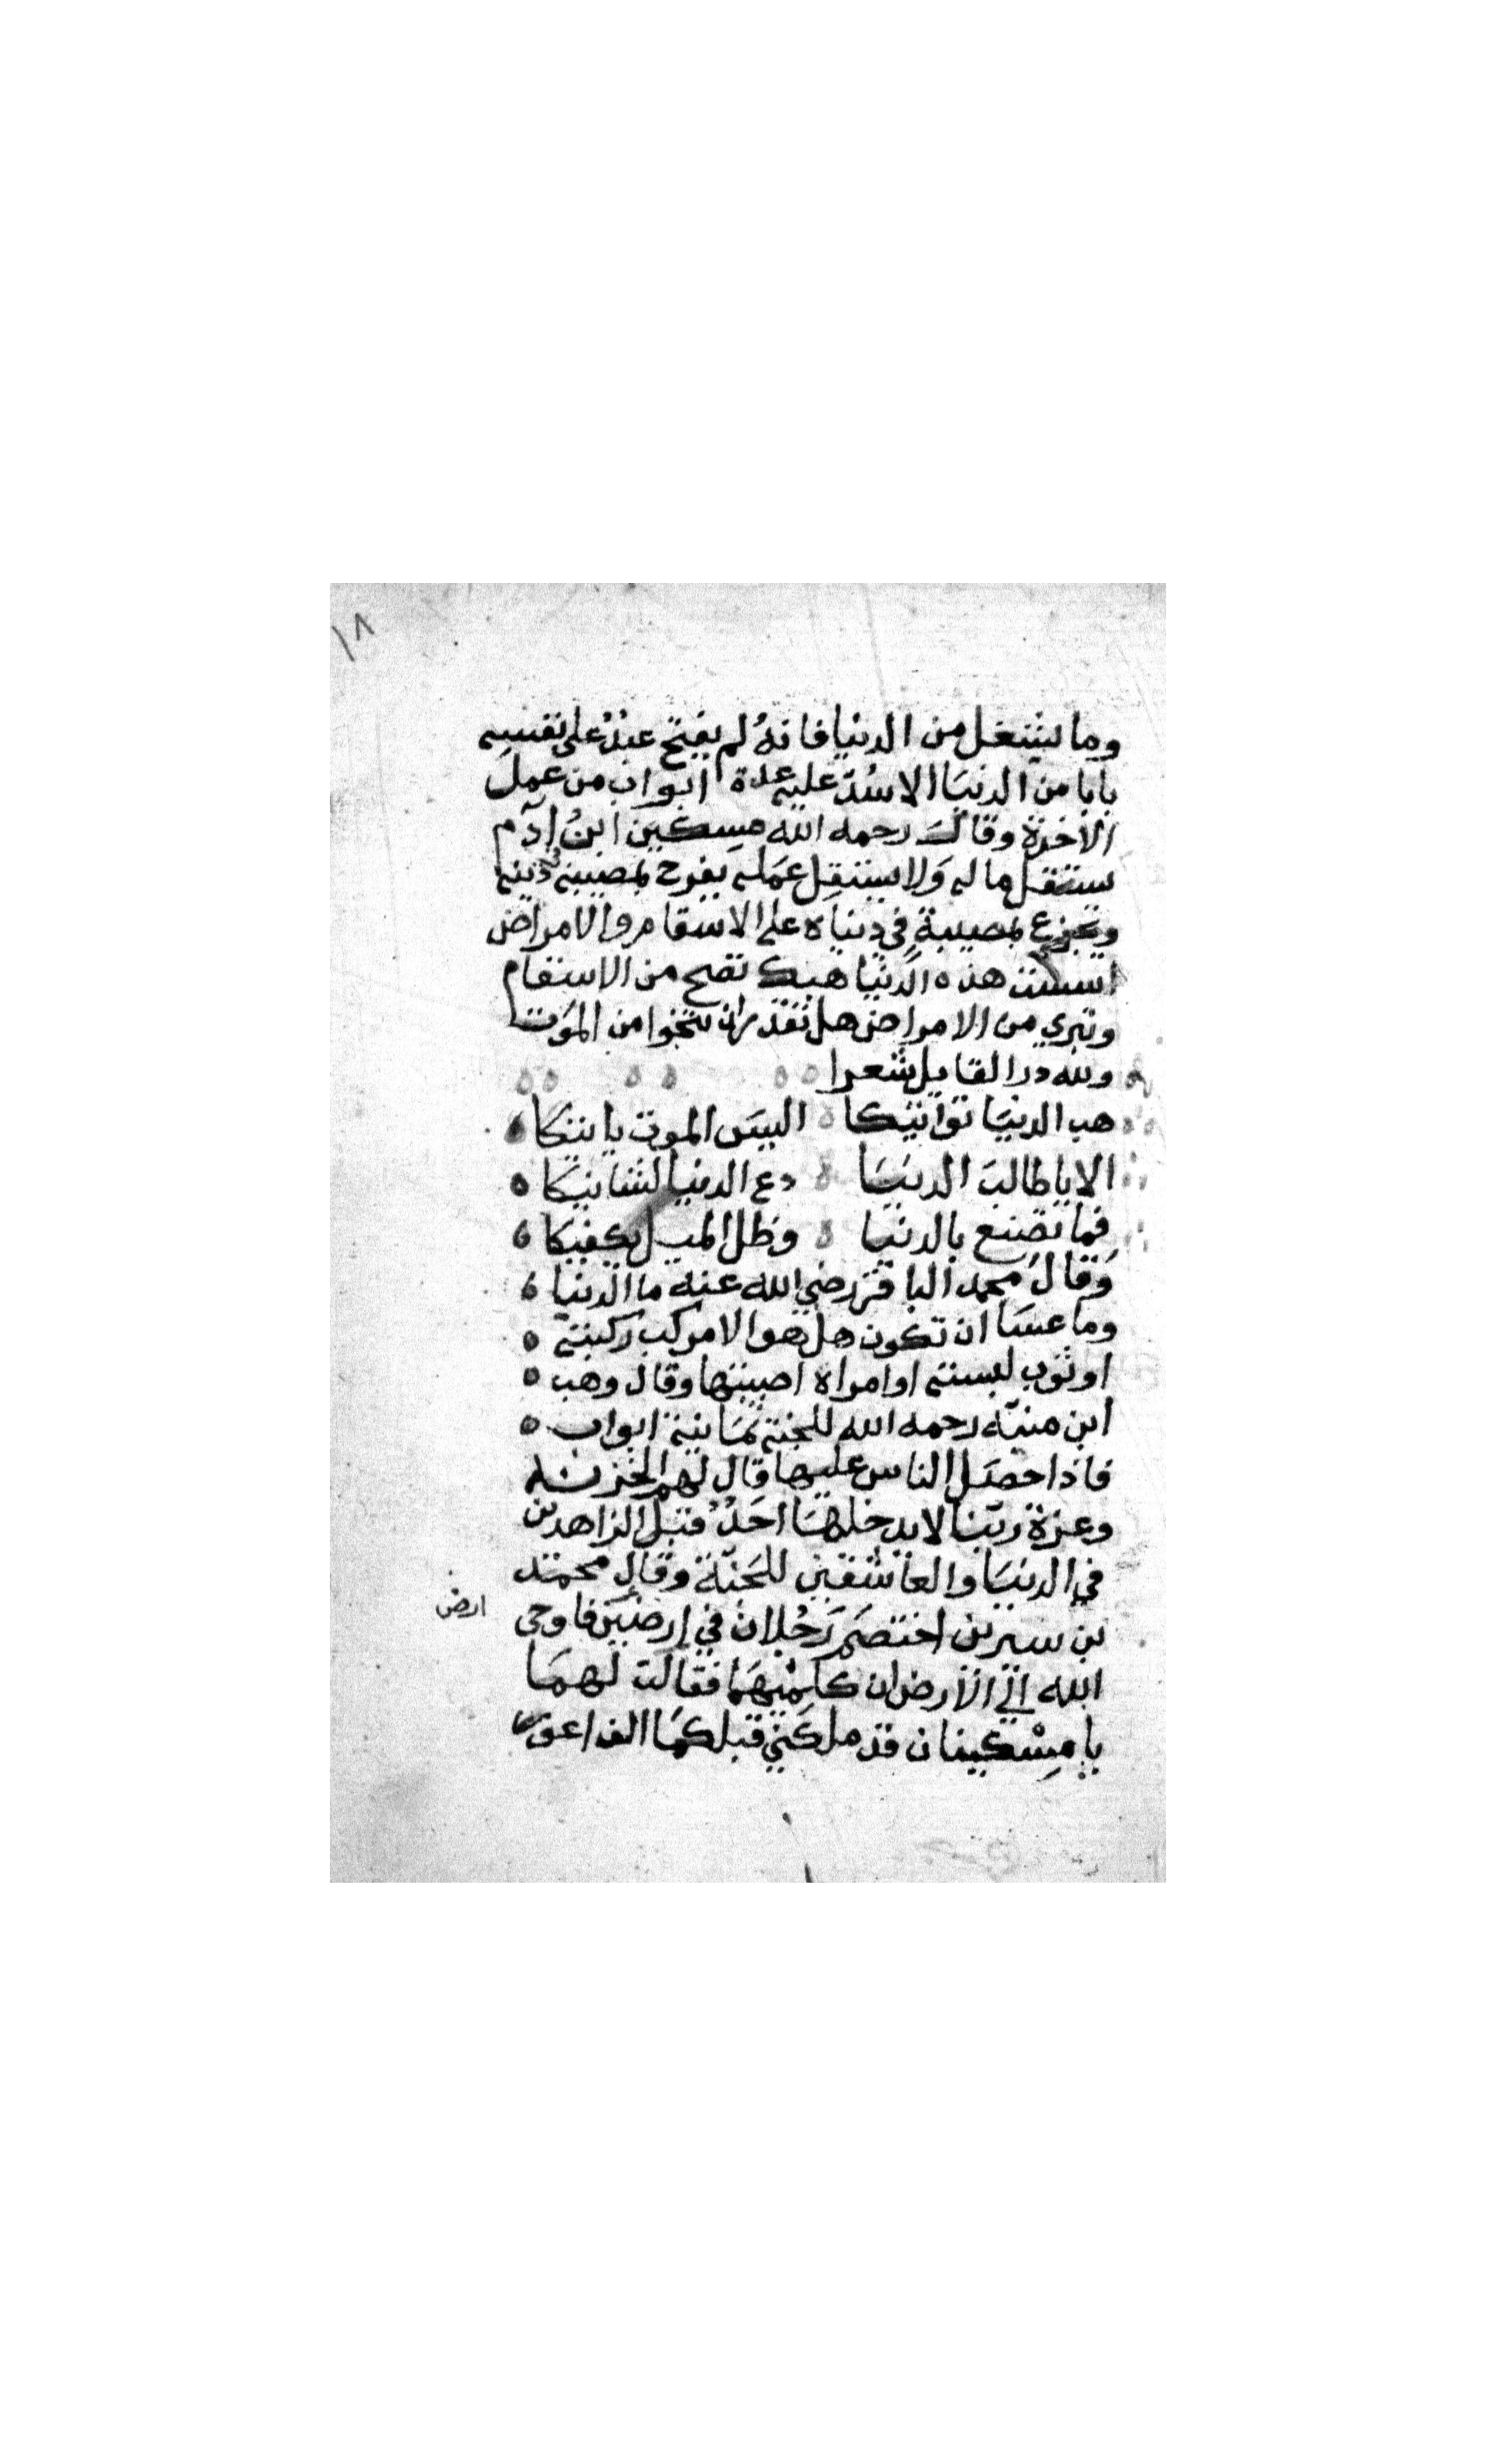 ١٨
وما يشغل من الدنيا فانهُ لم يفتح عبْدٌ على نفسه
بابا من الدنيَا الا سُدّ عليه عدة ابواب من عمِل
الاخرة وقالَ رحمه الله مسِكين ابنُ ادآم
يستقل ماله وَلا يستقِل عمَله يفرح بمصيبته في دينه
ويجزع بمصيبةٍ في دنياه على الاسقام والامراض
اسست هذه الدنيا هبك تصح من الاسقام
وتبري من الامراض هل تقدر ان تنجوا من المَوت
ولله در القايل شعرا
هب الدنيَا تواتيكا اليسَ الموت ياتيكا
الا يا طالبَ الدنيَا دع الدنيا لشانيكَا
فما تصنع بالدنيا وظل الميل يكفيكا
وَقالَ محمد الباقر رضي الله عنه ما الدنيا
وما عسَا ان تكون هل هو الا مركب ركبته
او ثوب لبسته او امراة اصبتها وقال وهب
ابن منبّه رحمه الله للجنة ثمَانية ابواب
فاذا حصَل الناس عليها قال لهم الخزنة
وعزة ربّنا لا يدخلهَا احَدٌ قبل الزاهدين
في الدنيَا والعاشقين للجَنّة وقال محمّد
بن سيرين اختصَم رَجُلان في ارضٍ فاوحى
ارض
الله الي الارض ان كلميْهمَا فقالت لهمَا
يا مِسْكينان قد ملكَني قبلكمَا الف اعور